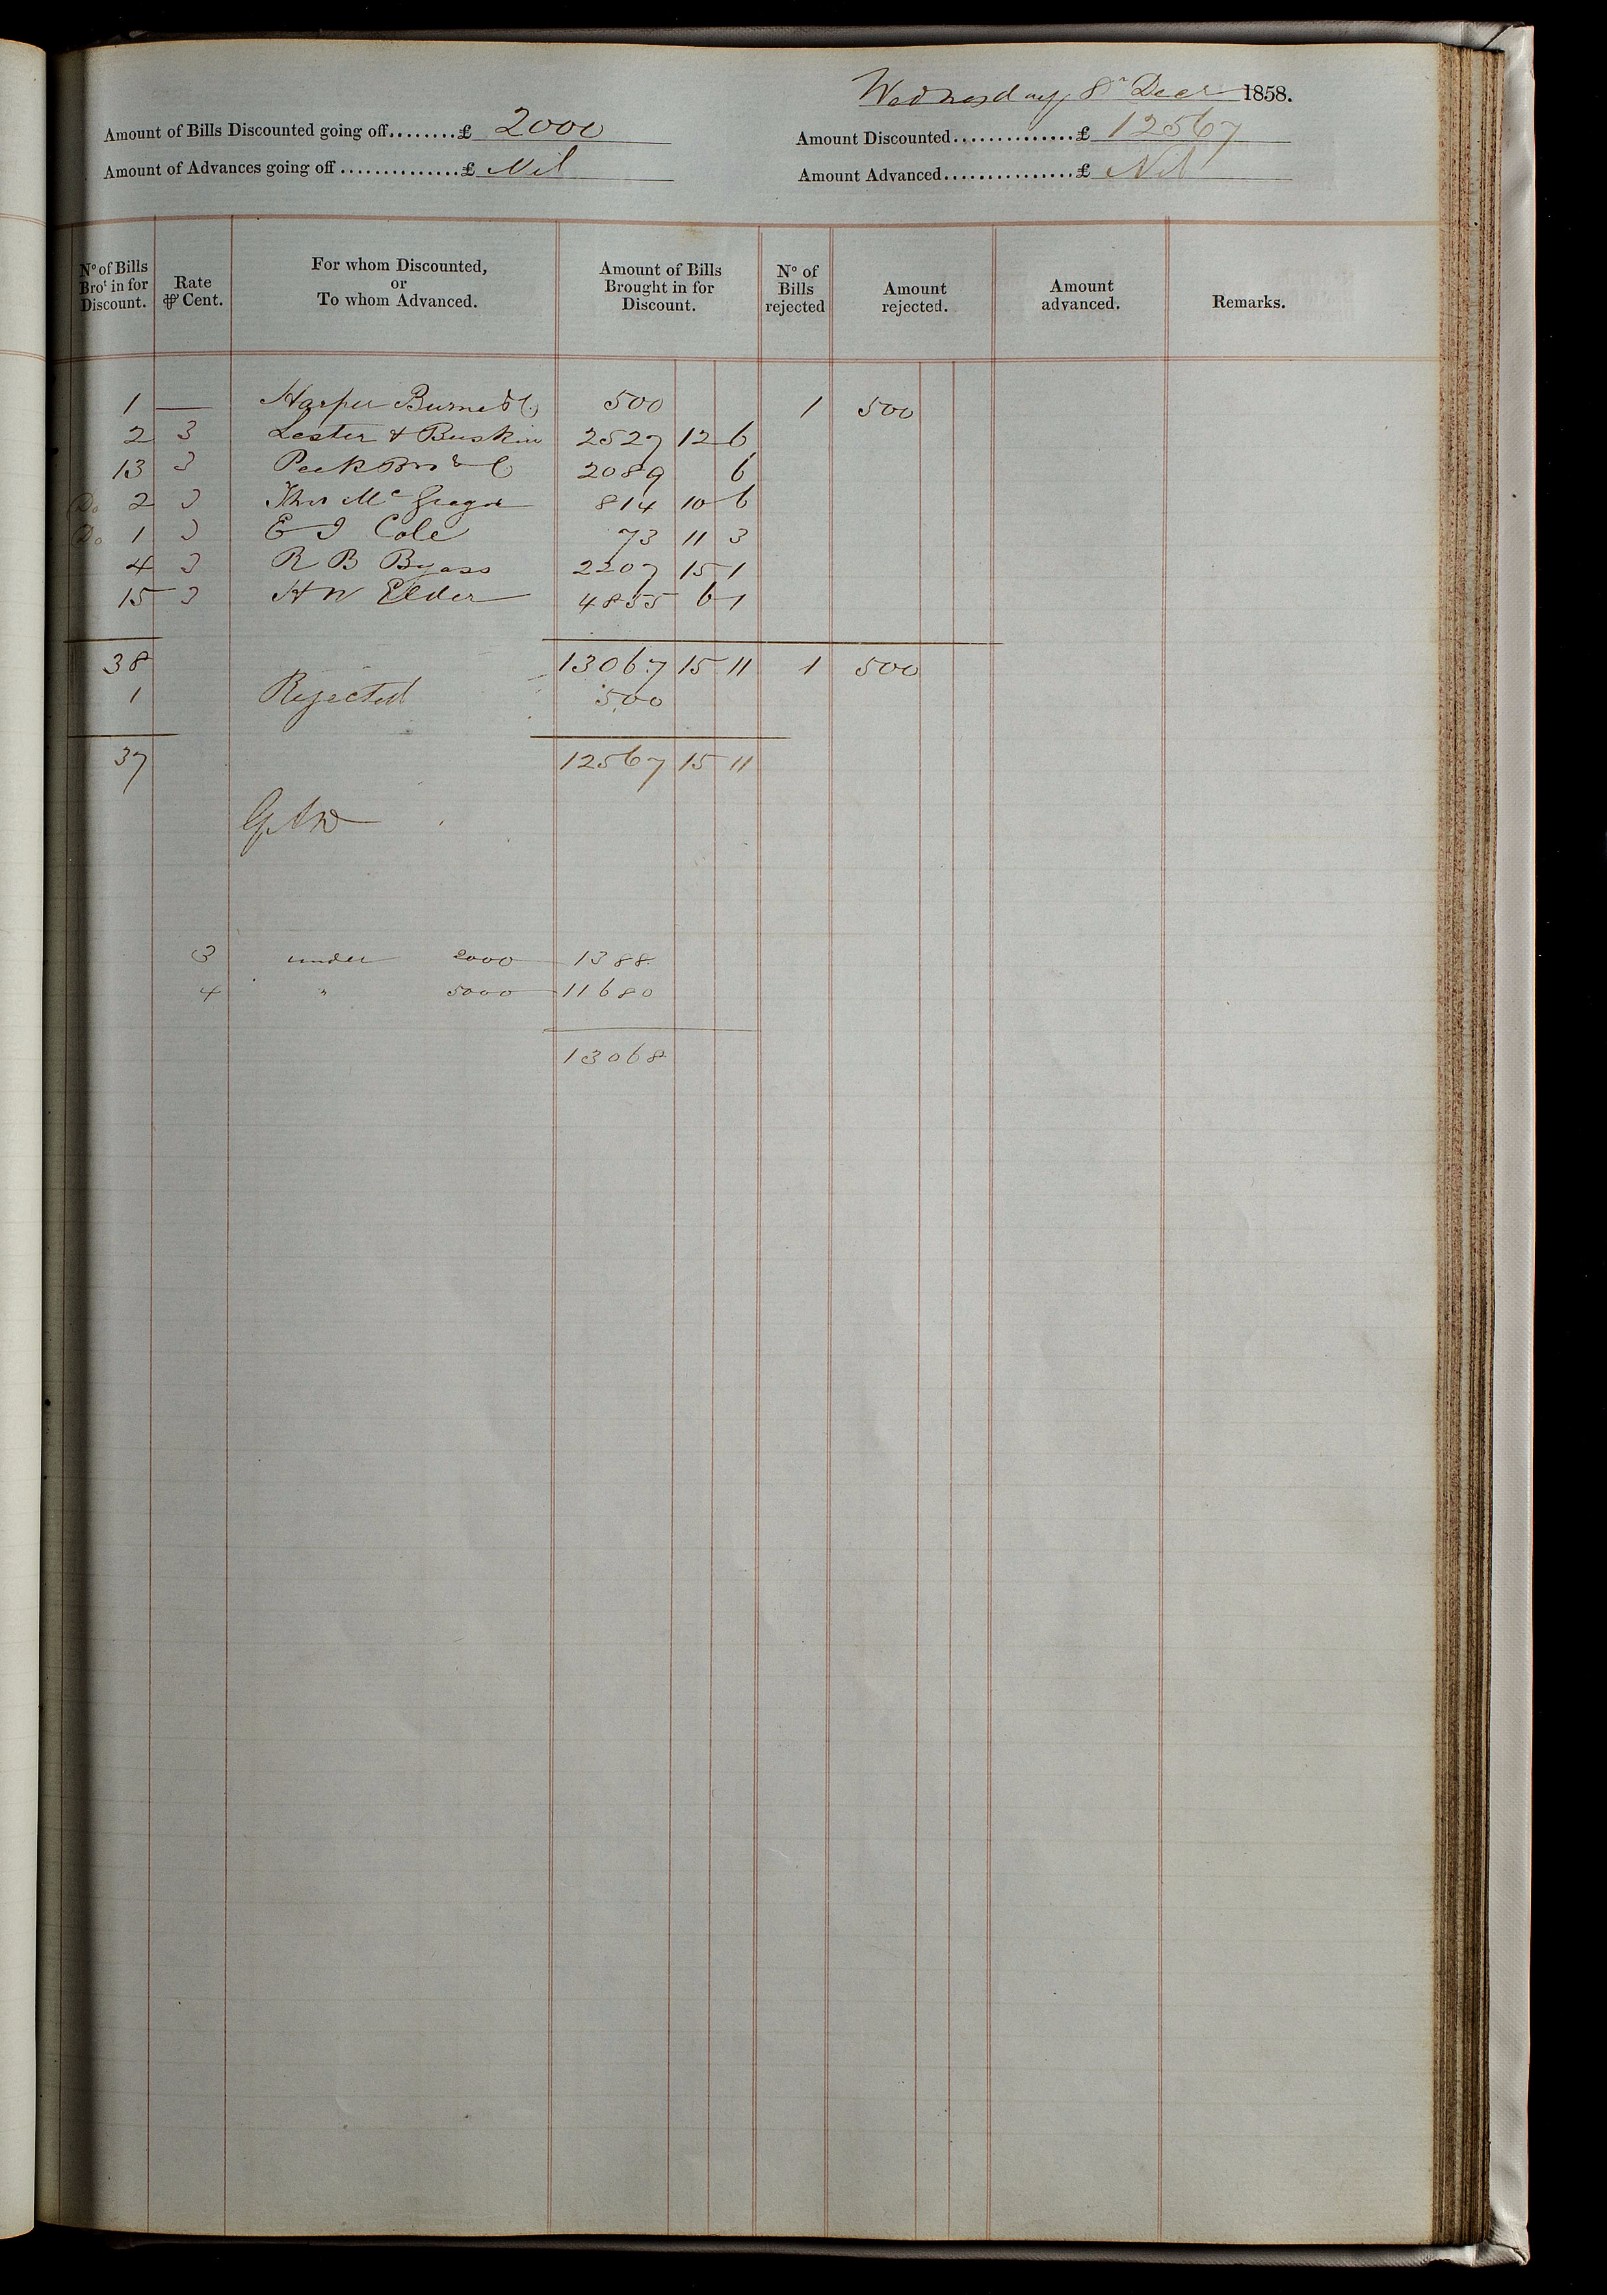 Wednesday, 8th Decr 1858.
Amount of Bills Discounted going off........£ 2000
Amount Discounted...............£ 12567
Amount of Advances going off ..............£ Nil
Amount Advanced...............£ Nil
No of Bills Brot in for Discount.
Rate ⅌ Cent.
For whom Discounted, or To whom Advanced.
Amount of Bills Brought in for Discount.
No of Bills rejected
Amount rejected.
Amount advanced.
Remarks.
1 — Harper Burne & Co 500 1 500
2 3 Lester & Buskin 2527 12 6
13 3 Peek Bros & Co 2089 6
Do 2 3 Thos McGregor 814 10 6
Do 1 3 E J Cole 73 11 3
4 3 R B Byass 2207 15 1
15 3 H W Elder 4855 6 1
38 13067 15 11 1 500
1 Rejected 500
37 12567 15 11
3 under 2000 1388
4 " 5000 11680
13068